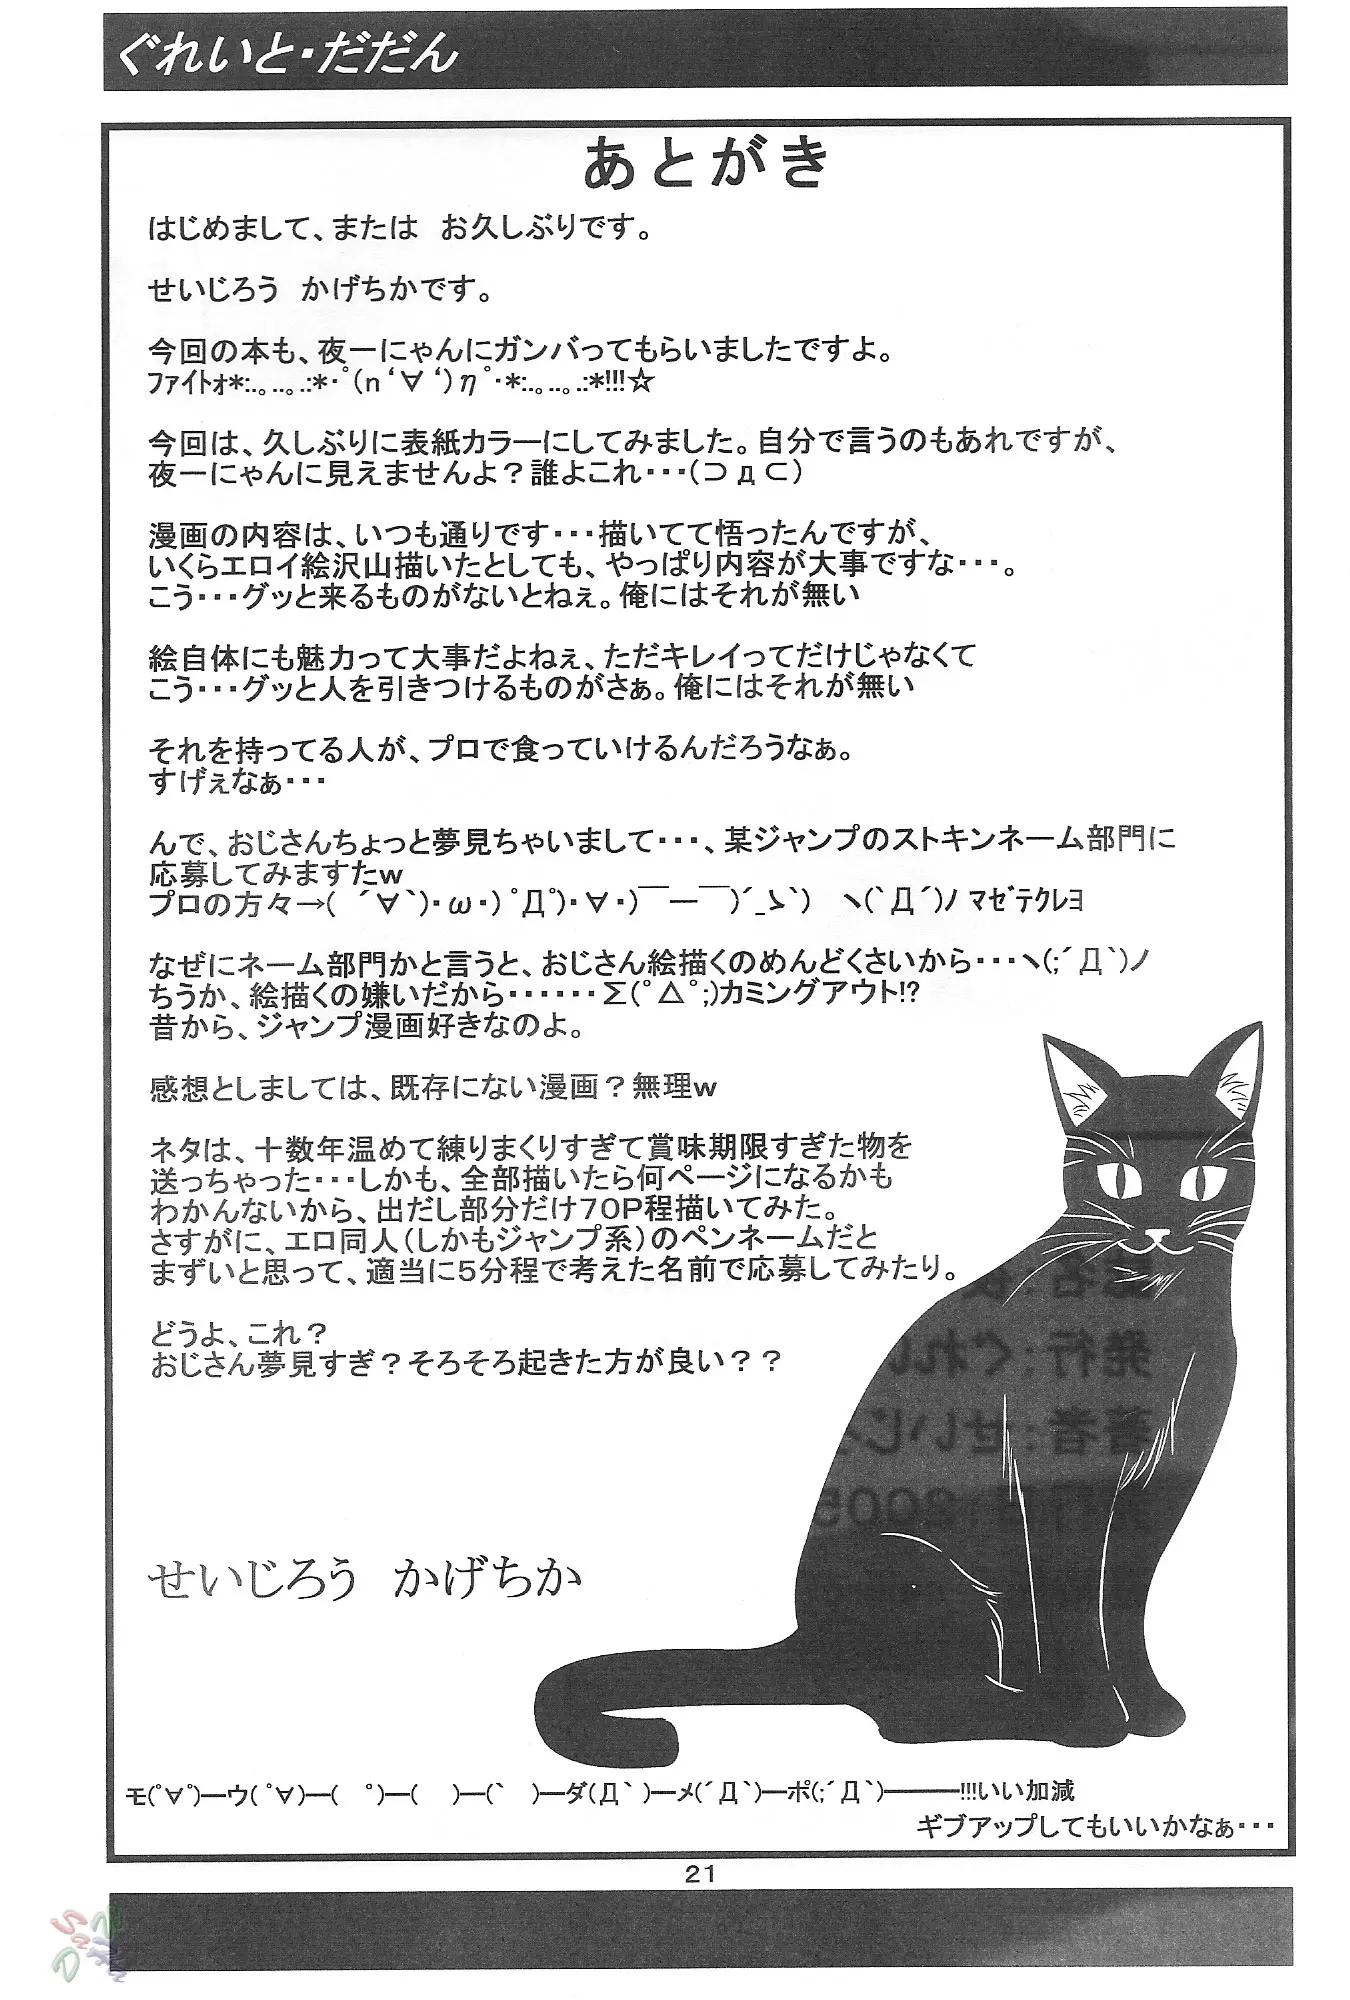 ぐれいと・だだん
あとがき
はじめまして、または　お久しぶりです。
せいじろう　かげちかです。
今回の本も、夜一にゃんにガンバってもらいましたですよ。
ﾌｧｲﾄｫ*:.｡..｡.:*･ﾟ(ｎ‘∀‘)ηﾟ･*:.｡..｡.:*!!!☆
今回は、久しぶりに表紙カラーにしてみました。自分で言うのもあれですが、
夜一にゃんに見えませんよ？誰よこれ・・・(⊃д⊂)
漫画の内容は、いつも通りです・・・描いてて悟ったんですが、
いくらエロイ絵沢山描いたとしても、やっぱり内容が大事ですな・・・。
こう・・・グッと来るものがないとねぇ。俺にはそれが無い
絵自体にも魅力って大事だよねぇ、ただキレイってだけじゃなくて
こう・・・グッと人を引きつけるものがさぁ。俺にはそれが無い
それを持ってる人が、プロで食っていけるんだろうなぁ。
すげぇなぁ・・・
んで、おじさんちょっと夢見ちゃいまして・・・、某ジャンプのストキンネーム部門に
応募してみますたｗ
プロの方々→(　´∀｀)・ω・)ﾟДﾟ)・∀・)￣ー￣)´_ゝ｀)　ヽ(｀Д´)ﾉ ﾏｾﾞﾃｸﾚﾖ
なぜにネーム部門かと言うと、おじさん絵描くのめんどくさいから・・・ヽ(;´Д｀)ノ
ちうか、絵描くの嫌いだから・・・・・・Σ(ﾟ△ﾟ;)カミングアウト!?
昔から、ジャンプ漫画好きなのよ。
感想としましては、既存にない漫画？無理ｗ
ネタは、十数年温めて練りまくりすぎて賞味期限すぎた物を
送っちゃった・・・しかも、全部描いたら何ページになるかも
わかんないから、出だし部分だけ70P程描いてみた。
さすがに、エロ同人(しかもジャンプ系)のペンネームだと
まずいと思って、適当に5分程で考えた名前で応募してみたり。
どうよ、これ？
おじさん夢見すぎ？そろそろ起きた方が良い？？
せいじろう　かげちか
モ(ﾟ∀ﾟ)―ウ( ﾟ∀)―(　ﾟ)―(　　)―(｀　)―ダ(Д｀)―メ(´Д｀)―ポ(;´Д｀)――――!!!いい加減
ギブアップしてもいいかなぁ・・・
21